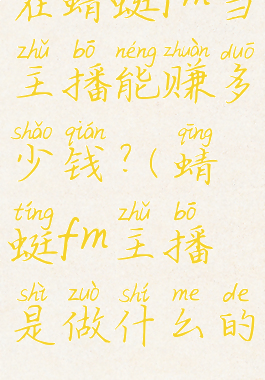 在蜻蜓fm当
zhǔ bō néng zhuàn duō
主播能赚多
shǎo qián qīng
少钱?(蜻
tíng zhǔ bō
蜓fm主播
shì zuò shí me de
是做什么的